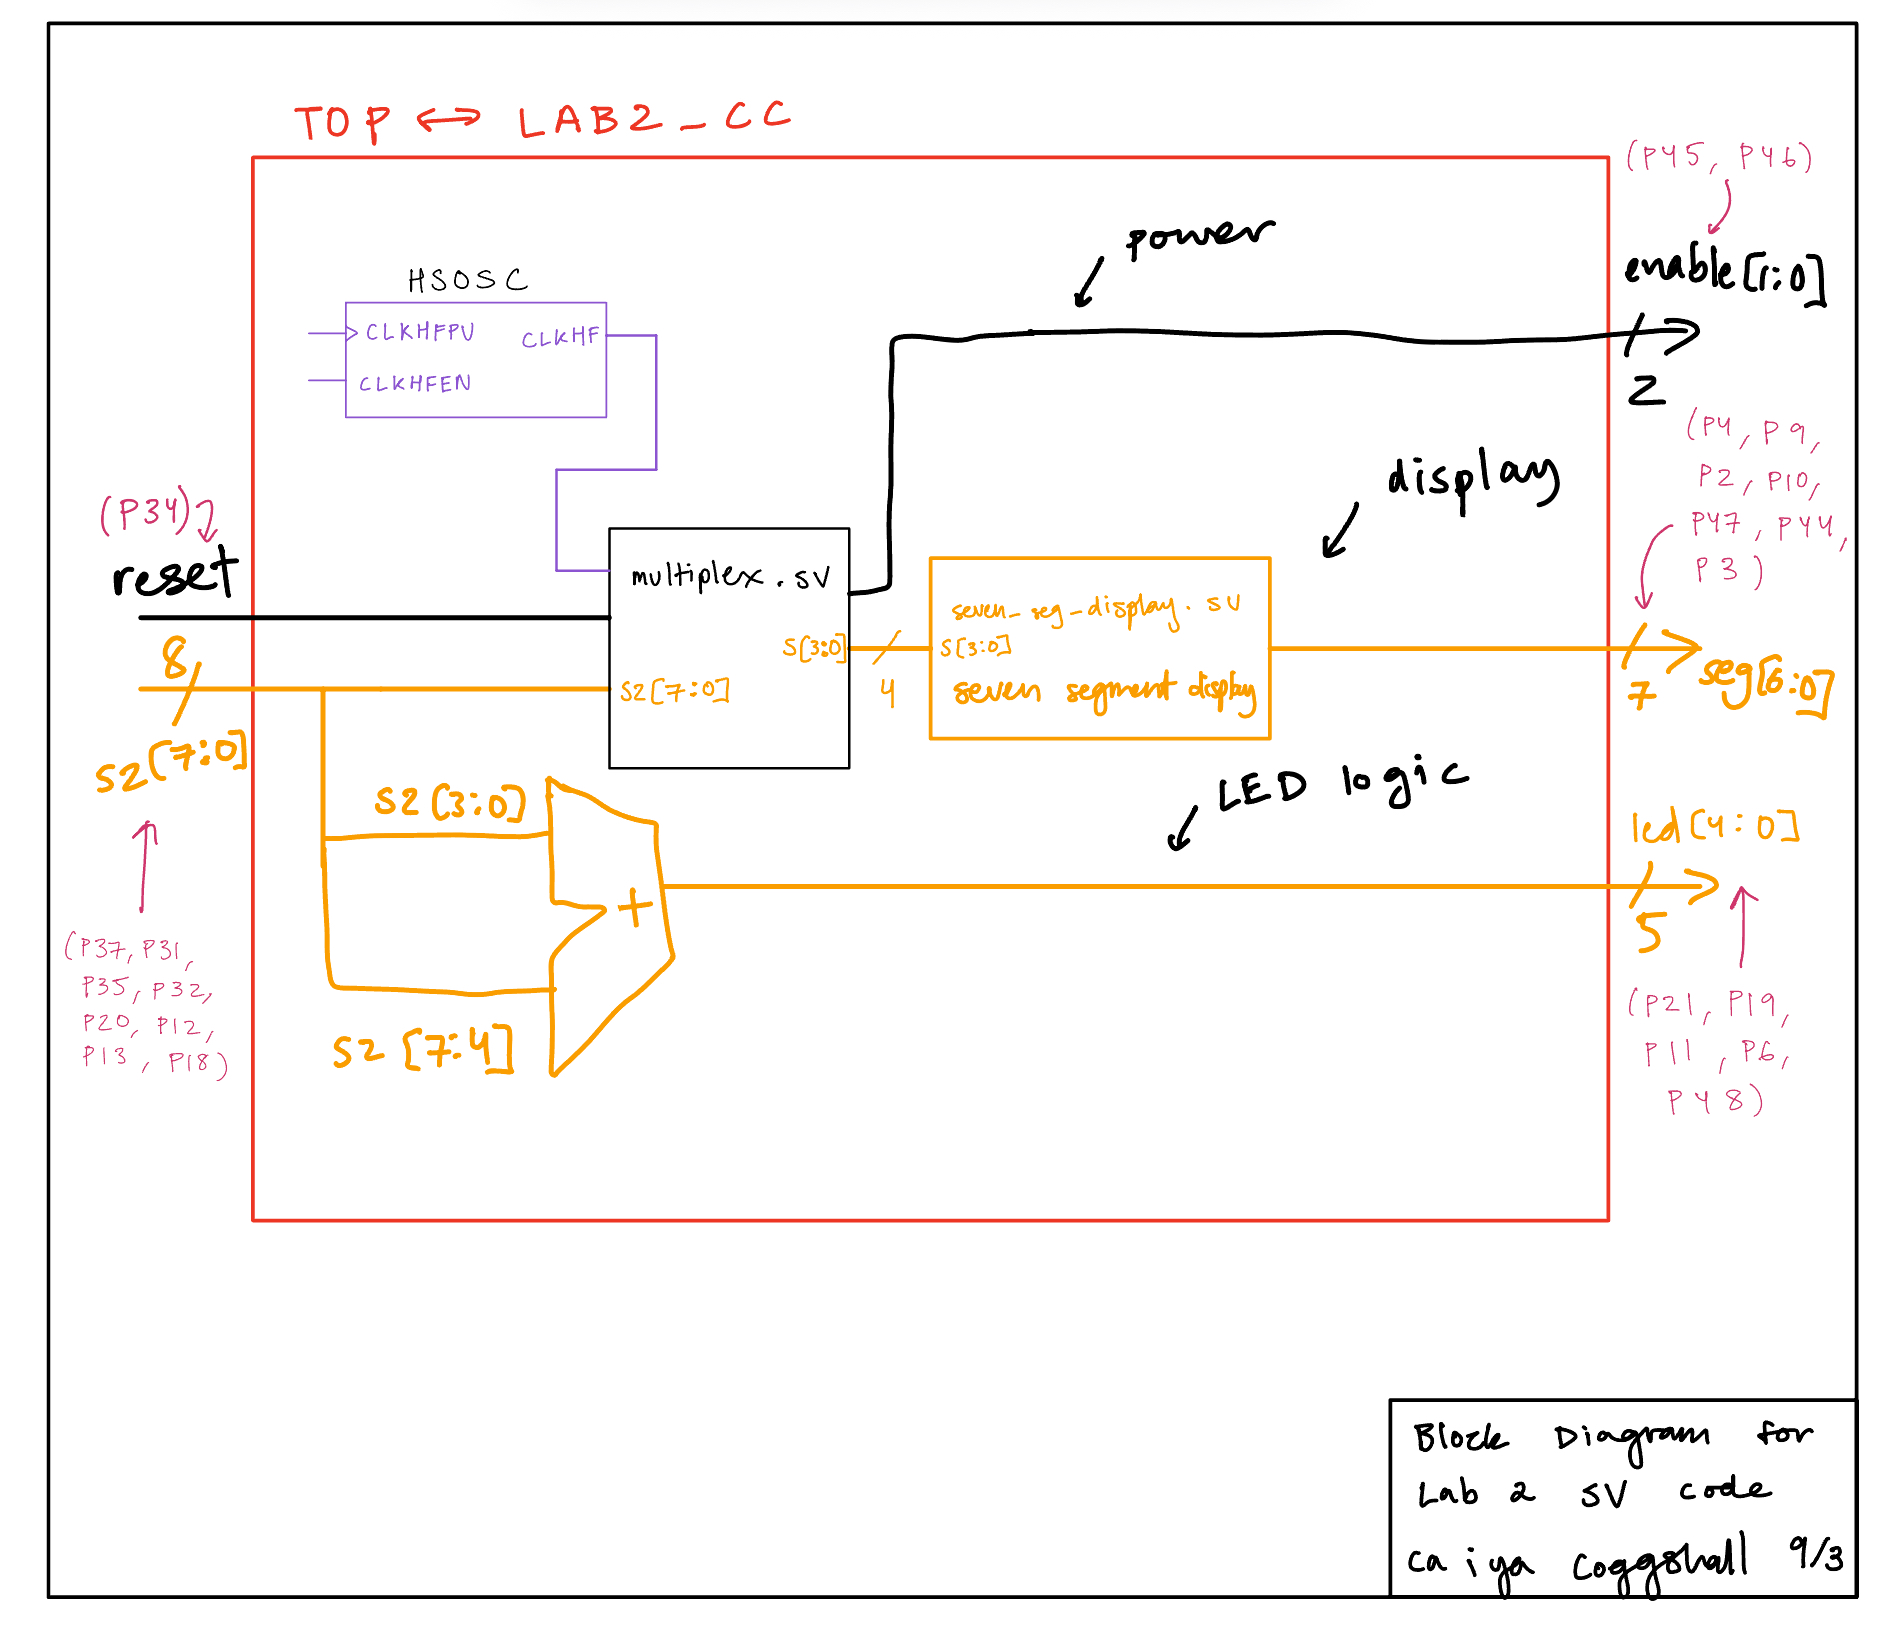 TOP ↔ LAB2_CC
(P45, P46)
power
enable[1:0]
HSOSC
CLKHFPU CLKHF
CLKHFEN
2
(P4, P9,
P2, P10,
P47, P44,
P3)
display
(P34)
reset
multiplex.sv
seven_seg_display.sv
S[3:0]
S[3:0]
8
4
S2[7:0]
seven segment display
7
seg[6:0]
S2[7:0]
LED logic
S2[3:0]
led[4:0]
+
5
(P37, P31,
P35, P32,
P20, P12,
P13, P18)
S2[7:4]
(P21, P19,
P11, P6,
P48)
Block Diagram for
Lab 2 SV code
Caiya Coggshall 9/3